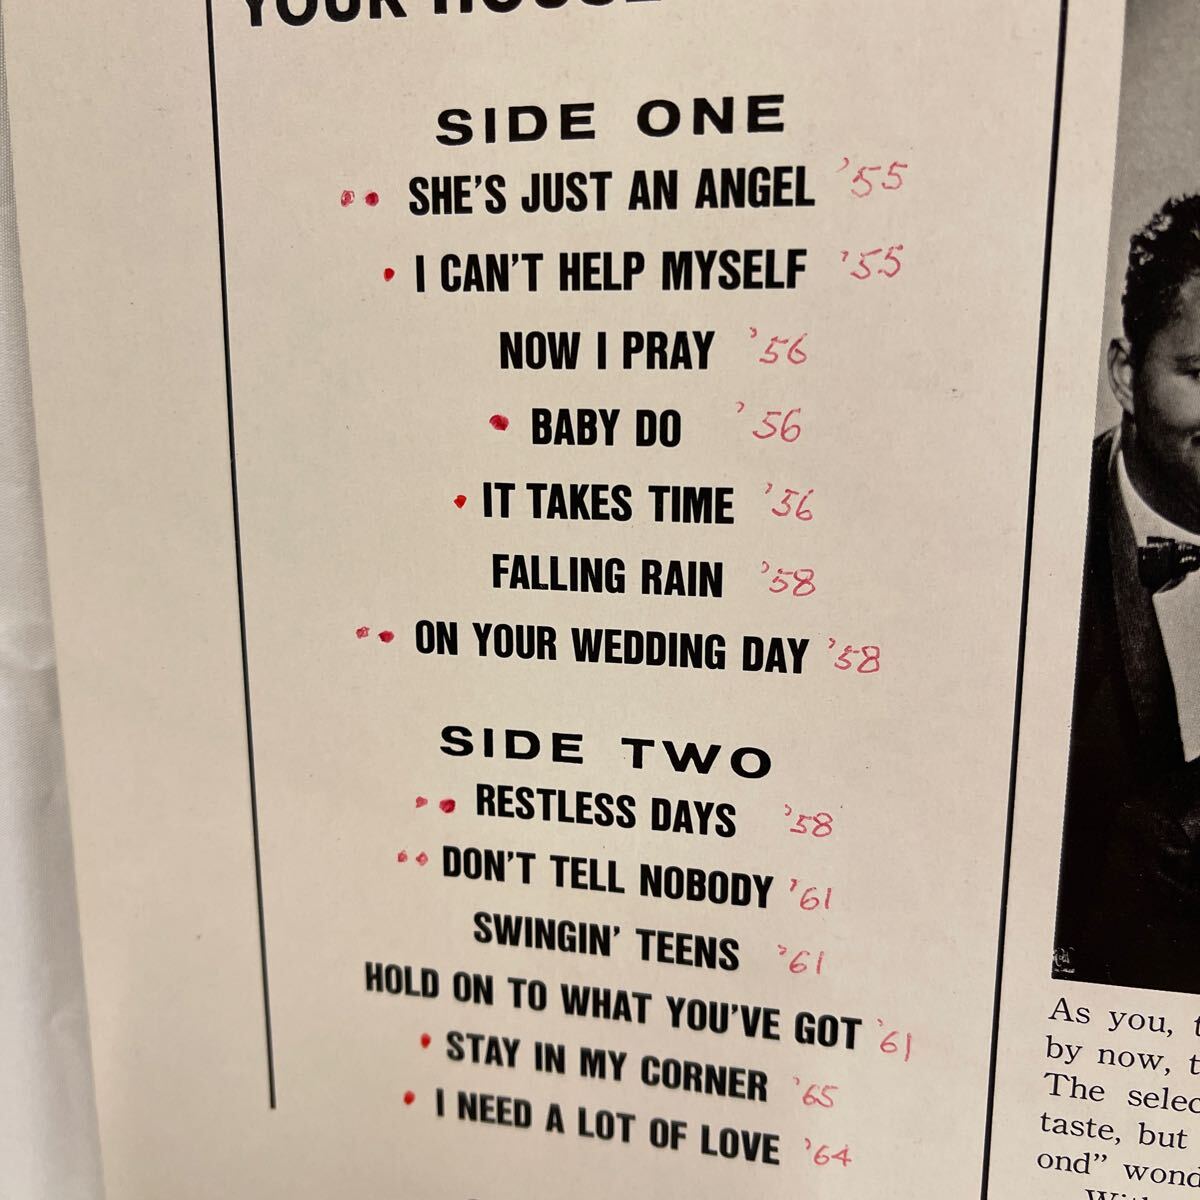 YOUR HOUSE
SIDE ONE
SHE'S JUST AN ANGEL '55
I CAN'T HELP MYSELF '55
NOW I PRAY '56
BABY DO '56
IT TAKES TIME '56
FALLING RAIN '58
ON YOUR WEDDING DAY '58
SIDE TWO
RESTLESS DAYS '58
DON'T TELL NOBODY '61
SWINGIN' TEENS '61
HOLD ON TO WHAT YOU'VE GOT '61
STAY IN MY CORNER '65
I NEED A LOT OF LOVE '64
As you,
by now,
The
taste, but
ond"